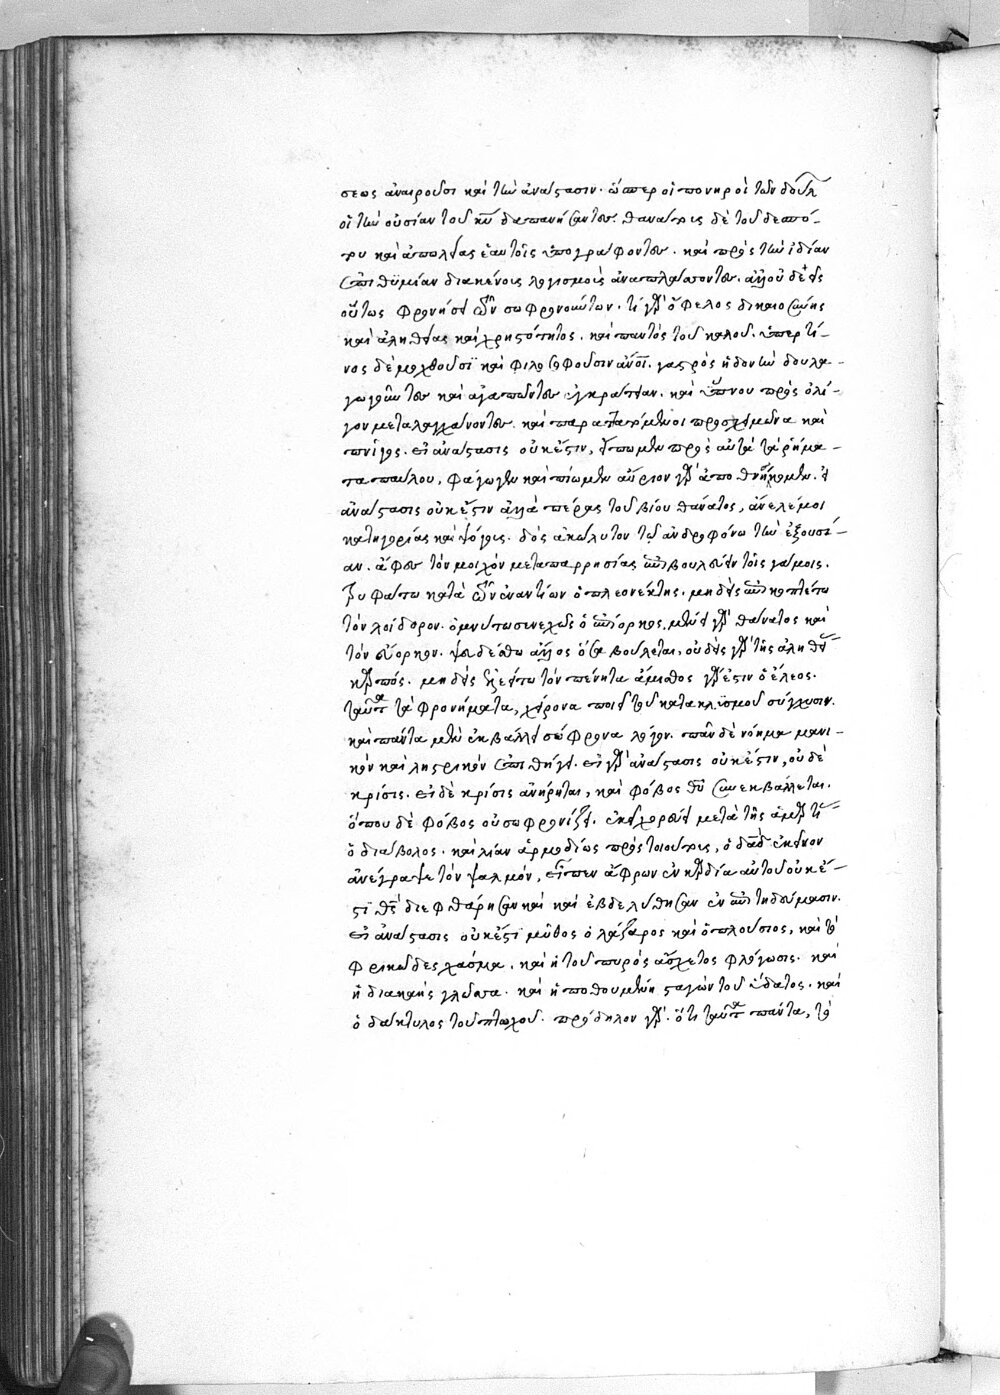 σεως ἀναιροῦσι καὶ τὴν ἀνάστασιν. ὥσπερ οἱ πονηροὶ τῶν δούλ
οἱ τὴν οὐσίαν τοῦ κυ δαπανήσαντες. θανάτους δὲ τοῦ δεσπό-
του καὶ ἀπωλείας ἑαυτοῖς ὑπογράφοντες. καὶ πρὸς τὴν ἰδίαν
ἐπιθυμίαν διακένοις λογισμοῖς ἀναπλάττοντες. ἀλλ' οὐδεὶς
οὕτως φρονήσει τῶν σωφρονούντων. τί γὰρ ὄφελος δικαιοσύνης
καὶ ἀληθείας καὶ χρηστότητος. καὶ παντὸς τοῦ καλοῦ. ὑπὲρ τί-
νος δὲ μοχθοῦσι καὶ φιλοσοφοῦσιν ἄνοι. γαστρὸς ἡδονὴν δουλα-
γωγοῦντες καὶ ἀγαπῶντες ἐγκράτειαν. καὶ ὕπνου πρὸς ὀλί-
γον μεταλαγχάνοντες. καὶ παραταττόμενοι πρὸς χειμῶνα καὶ
πνῖγος. εἰ ἀνάστασις οὐκ ἔστιν, εἴπωμεν πρὸς αὐτὰ τὰ ῥήμα-
τα παύλου, φάγωμεν καὶ πίωμεν αὔριον γὰρ ἀποθνήσκομεν. εἰ
ἀνάστασις οὐκ ἔστιν ἀλλὰ πέρας τοῦ βίου θάνατος, ἄνελέ μοι
κατηγορίας καὶ ψόγους. δὸς ἀκώλυτον τῷ ἀνδροφόνῳ τὴν ἐξουσί-
αν. ἄφες τὸν μοιχὸν μετὰ παρρησίας ἐπιβουλεύειν τοῖς γάμοις.
τρυφάτω κατὰ τῶν ἐναντίων ὁ πλεονέκτης. μηδεὶς ἐπικοπτέτω
τὸν λοίδορον. ὀμνύτω συνεχῶς ὁ ἐπίορκος. μένει γὰρ θάνατος καὶ
τὸν εὔορκον. ψευδέσθω ἄλλος ὅσα βούλεται, οὐδεὶς γὰρ τῆς ἀληθεί
καρπός. μηδεὶς ἐλεείτω τὸν πένητα ἄμισθος γάρ ἐστιν ὁ ἔλεος.
ταῦτα τὰ φρονήματα, χείρονα ποιεῖ τοῦ κατακλυσμοῦ σύγχυσιν.
καὶ πάντα μὲν ἐκβάλλει σώφρονα λόγον. πᾶν δὲ νόημα μανι-
κὸν καὶ λῃστρικὸν ἐπιθήγει. εἰ γὰρ ἀνάστασις οὐκ ἔστιν, οὐδὲ
κρίσις. εἰ δὲ κρίσις ἀνῄρηται, καὶ φόβος θυ συνεκβάλλεται.
ὅπου δὲ φόβος οὐ σωφρονίζει. ἐκεῖ χορεύει μετὰ τῆς ἁμαρτί
ὁ διάβολος. καὶ λίαν ἁρμοδίως πρὸς τοιούτους, ὁ δαδ ἐκεῖνον
ἀνέγραψε τὸν ψαλμόν, εἶπεν ἄφρων ἐν καρδίᾳ αὐτοῦ οὐκ ἔ-
στι θς διεφθάρησαν καὶ καὶ ἐβδελύχθησαν ἐν ἐπιτηδεύμασιν.
εἰ ἀνάστασις οὐκ ἔστι μῦθος ὁ λάζαρος καὶ ὁ πλούσιος, καὶ τὸ
φρικῶδες χάσμα. καὶ ἡ τοῦ πυρὸς ἄσχετος φλόγωσις. καὶ
ἡ διακαὴς γλῶττα. καὶ ἡ ποθουμένη σταγὼν τοῦ ὕδατος. καὶ
ὁ δάκτυλος τοῦ πτωχοῦ. πρόδηλον γὰρ. ὅτι ταῦτα πάντα, τὸ